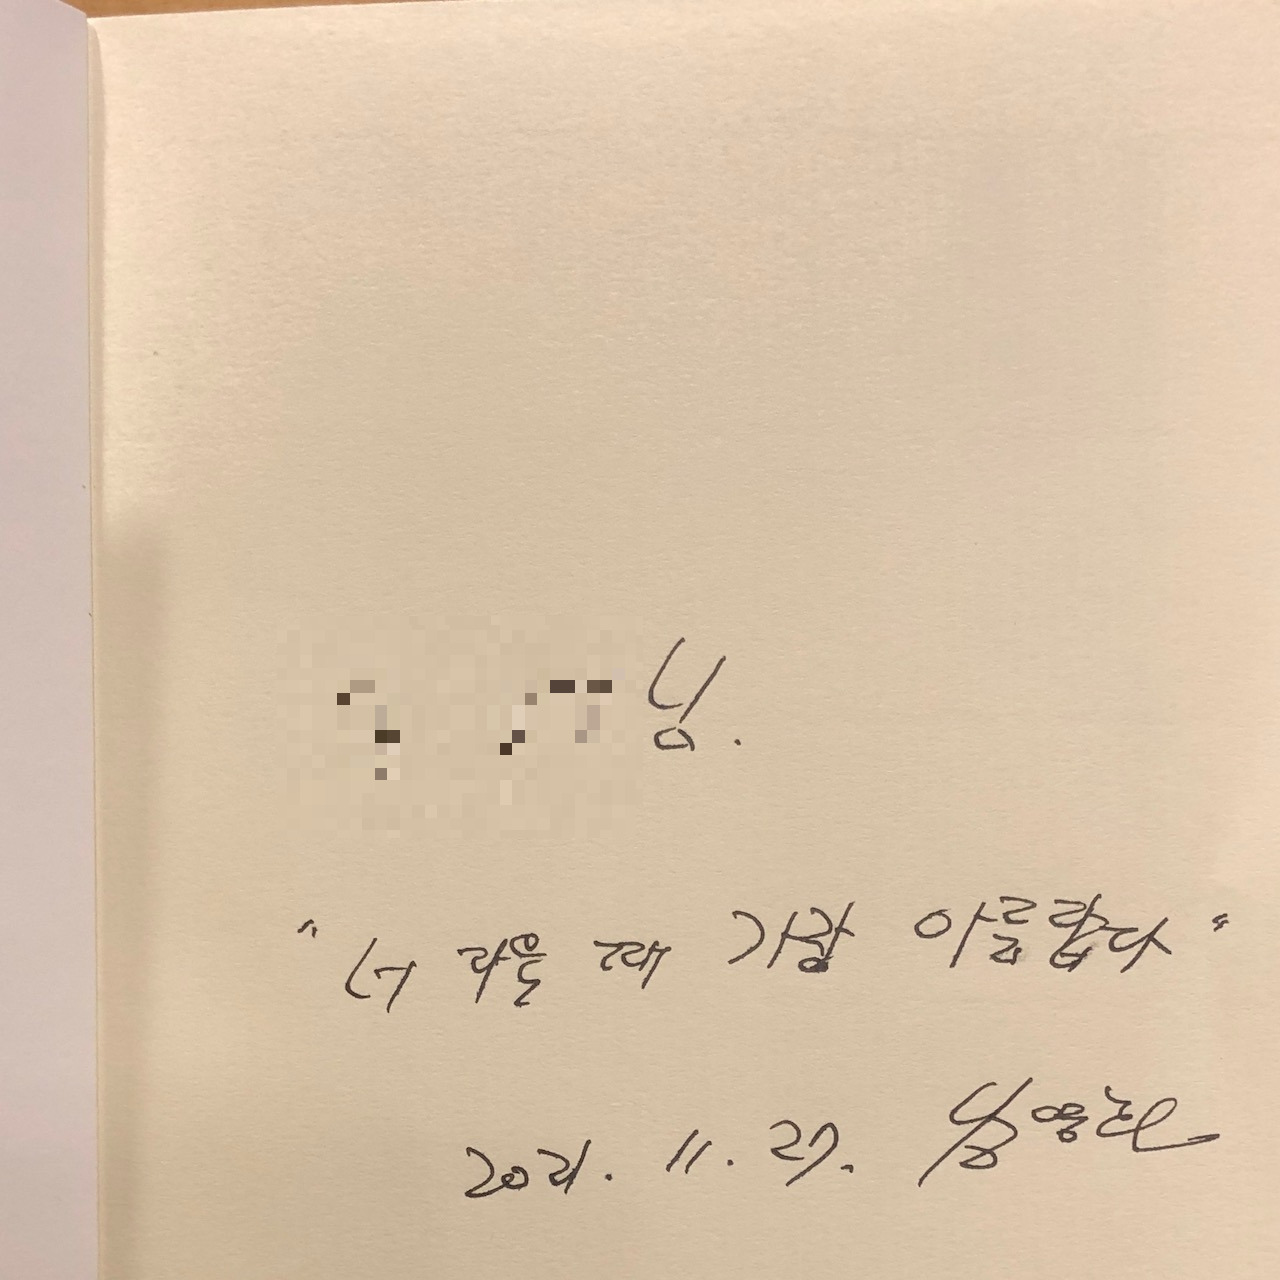 님.
"너 다울 때 가장 아름답다"
2021. 11. 27.